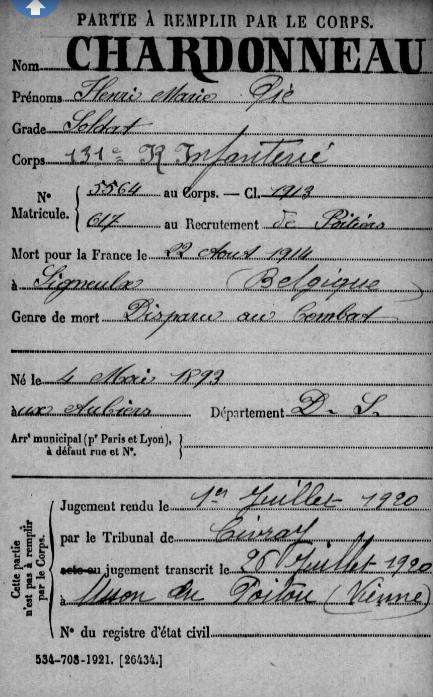 PARTIE À REMPLIR PAR LE CORPS.
Nom CHARDONNEAU
Prénoms Henri Marie Pie
Grade Soldat
Corps 131e R Infanterie
N° Matricule. { 5564 au Corps. — Cl. 1913
617 au Recrutement de Poitiers
Mort pour la France le 22 Aout 1914
à Signeulx (Belgique)
Genre de mort Disparu au Combat
Né le 4 Mai 1893
aux Aubiers Département D. S.
Arr' municipal (p' Paris et Lyon), }
à défaut rue et N°.
Cette partie n'est pas à remplir par le Corps.
Jugement rendu le 1er Juillet 1920
par le Tribunal de Civray
acte ou jugement transcrit le 26 Juillet 1920
à du Poitou (Vienne)
N° du registre d'état civil
534-708-1921. [26434.]